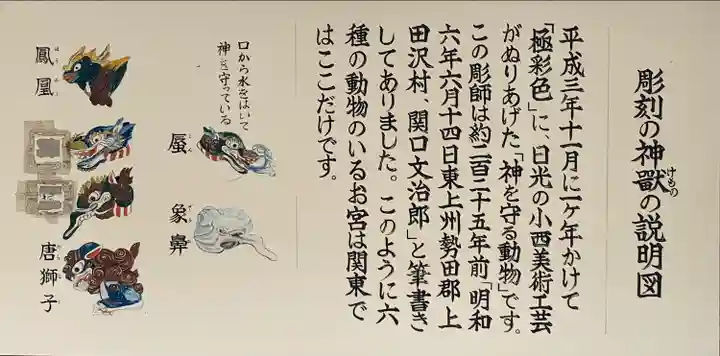 彫刻の神獸の説明図
けもの
平成三年十一月に一ヶ年かけて
「極彩色」に、日光の小西美術工芸
がぬりあげた「神を守る動物」です。
この彫師は約二百二十五年前「明和
六年六月十四日東上州勢田郡上
田沢村、関口文治郎」と筆書き
してありました。このように六
種の動物のいるお宮は関東で
はここだけです。
口から水をはいて
神を守っている
蜃
しん
象鼻
ぞうはな
鳳凰
ほうおう
唐獅子
からじし